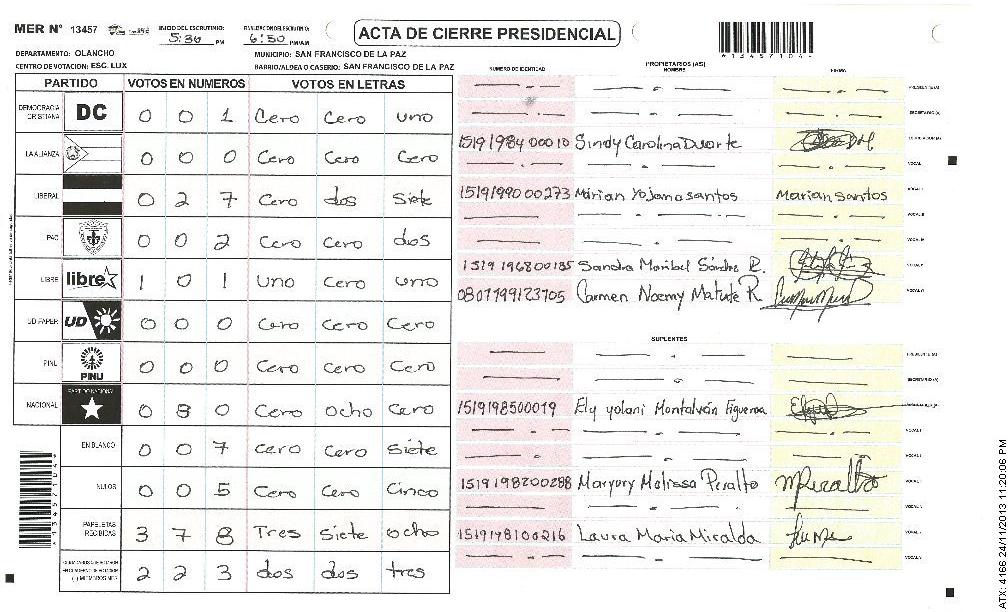 MER Nº 13457 INICIO DEL ESCRUTINIO: 5:36 PM FINALIZACION DEL ESCRUTINIO: 6:50 PM/AM ACTA DE CIERRE PRESIDENCIAL
DEPARTAMENTO: OLANCHO MUNICIPIO: SAN FRANCISCO DE LA PAZ
CENTRO DE VOTACION: ESC. LUX BARRIO/ALDEA O CASERIO: SAN FRANCISCO DE LA PAZ
PARTIDO VOTOS EN NUMEROS VOTOS EN LETRAS
DEMOCRACIA CRISTIANA DC 0 0 1 Cero Cero uno
LA ALIANZA 0 0 0 Cero Cero Cero
LIBERAL 0 2 7 Cero dos Siete
PAC 0 0 2 Cero Cero dos
LIBRE libre 1 0 1 Uno Cero uno
UD FAPER UD 0 0 0 Cero Cero Cero
PINU PINU 0 0 0 Cero Cero Cero
NACIONAL PARTIDO NACIONAL 0 8 0 Cero Ocho Cero
EN BLANCO 0 0 7 Cero Cero Siete
NULOS 0 0 5 Cero Cero Cinco
PAPELETAS RECIBIDAS 3 7 8 Tres Siete ocho
2 2 3 dos dos tres
PROPIETARIOS (AS)
NUMERO DE IDENTIDAD NOMBRE FIRMA
PRESIDENTE (A)
SECRETARIO (A)
1519198400010 Sindy Carolina Duarte
VOCAL
1519199000273 Mirian Yojana santos Marian Santos
1519196800185 Sandra Maribel Sánchez R.
0801199123705 Carmen Noemy Matute R
SUPLENTES
PRESIDENTE (A)
SECRETARIO (A)
1519198500019 Ely yolani Montalván Figueroa
1519198200288 Maryory Melissa Peralta MPeralta
1519198100216 Laura Maria Miralda
ATX: 4166 24/11/2013 11:20:06 PM